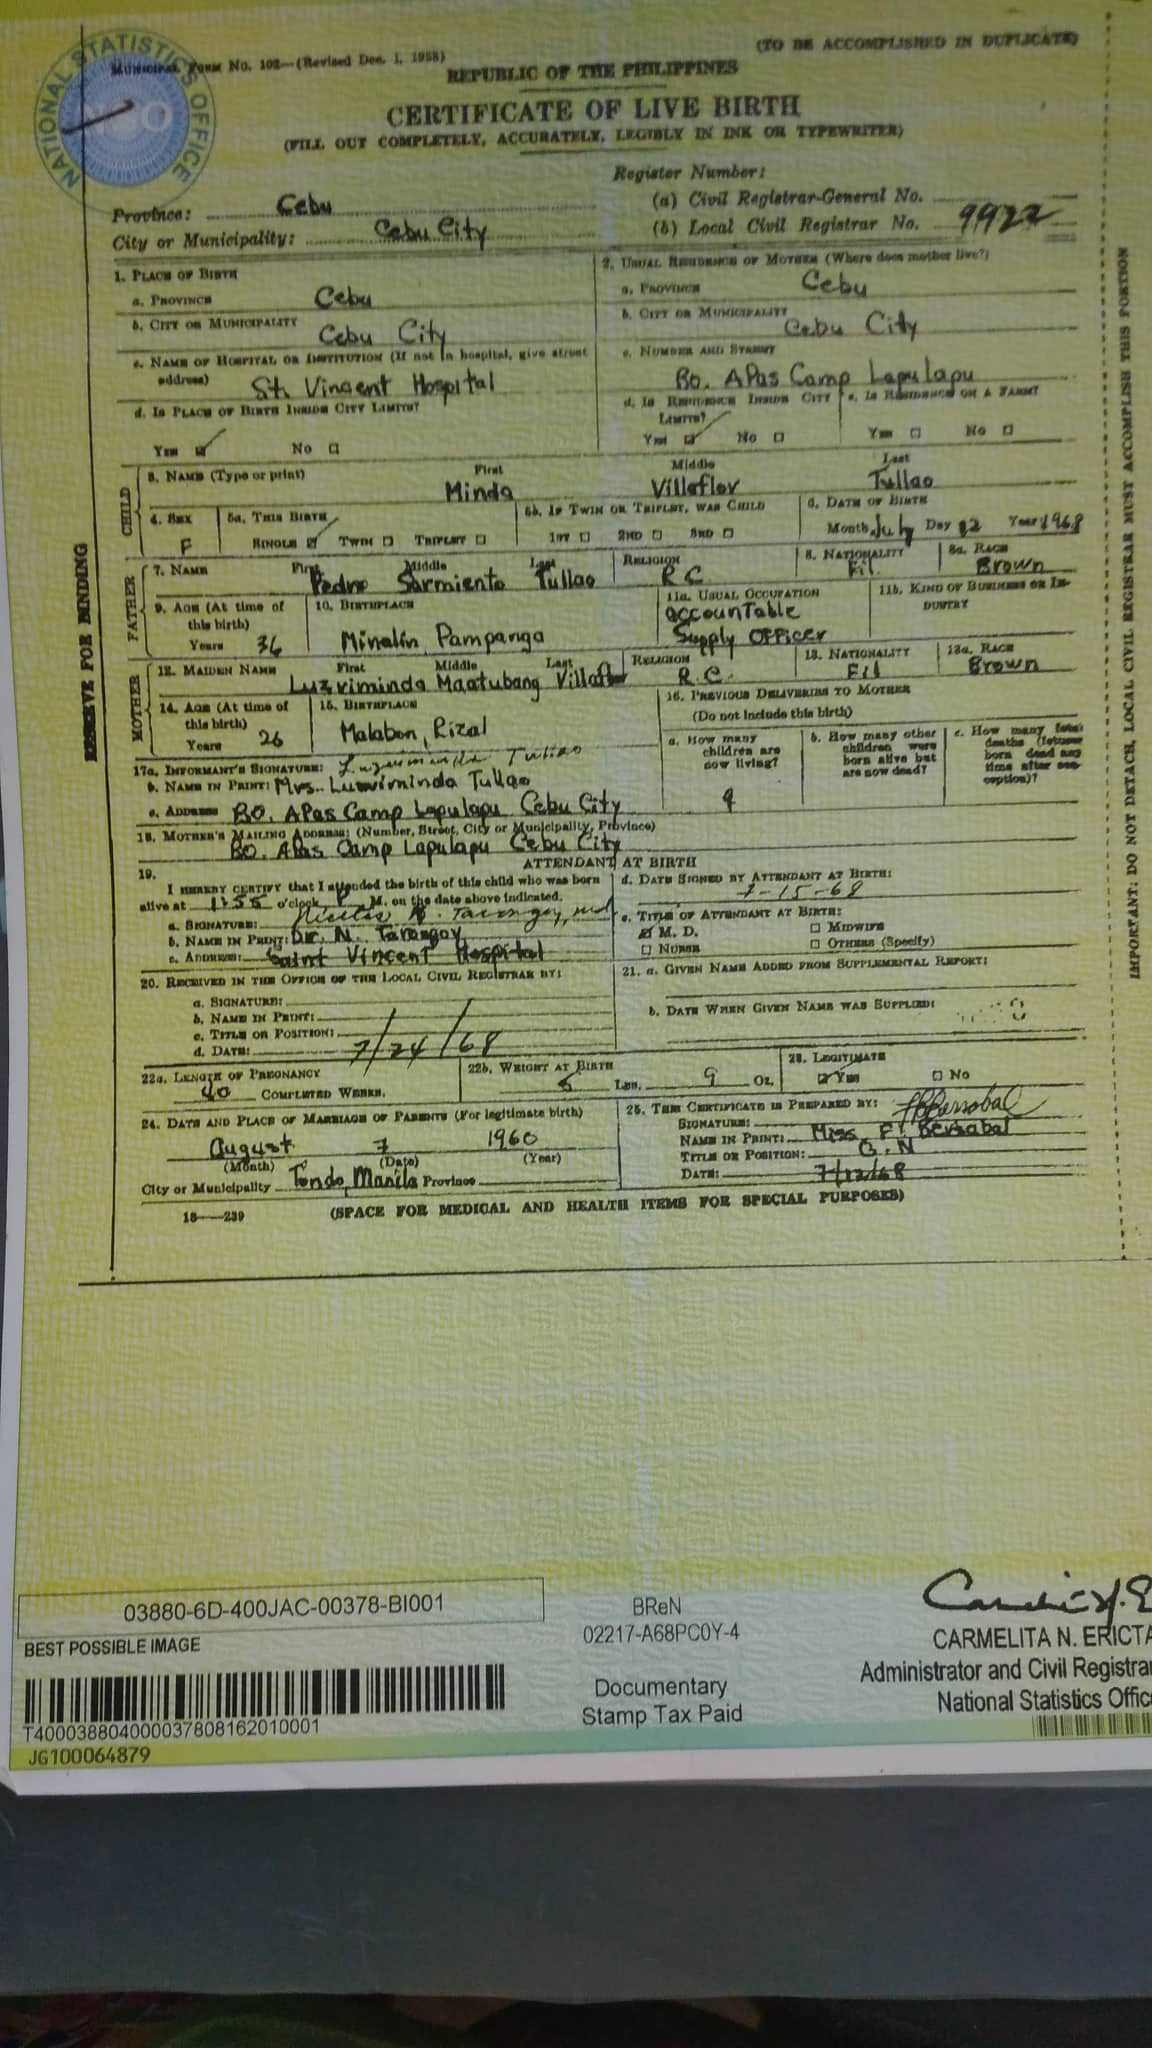 (TO BE ACCOMPLISHED IN DUPLICATE)
MUNICIPAL FORM No. 102—(Revised Dec. 1, 1958)
NATIONAL STATISTICS OFFICE
REPUBLIC OF THE PHILIPPINES
CERTIFICATE OF LIVE BIRTH
(FILL OUT COMPLETELY, ACCURATELY, LEGIBLY IN INK OR TYPEWRITER)
Register Number:
Province: Cebu (a) Civil Registrar-General No.
City or Municipality: Cebu City (b) Local Civil Registrar No. 9922
1. PLACE OF BIRTH 2. USUAL RESIDENCE OF MOTHER (Where does mother live?)
a. PROVINCE Cebu a. PROVINCE Cebu
b. CITY OR MUNICIPALITY Cebu City b. CITY OR MUNICIPALITY Cebu City
c. NAME OF HOSPITAL OR INSTITUTION (If not in hospital, give street address) St. Vincent Hospital c. NUMBER AND STREET BO. APas Camp Lapulapu
d. IS PLACE OF BIRTH INSIDE CITY LIMITS? d. IS RESIDENCE INSIDE CITY LIMITS? e. IS RESIDENCE ON A FARM?
YES NO YES NO YES NO
CHILD
3. NAME (Type or print) First Middle Last
Minda Villaflor Tullao
4. SEX 5a. THIS BIRTH 5b. IF TWIN OR TRIPLET, WAS CHILD 6. DATE OF BIRTH
F SINGLE TWIN TRIPLET 1ST 2ND 3RD Month July Day 12 Year 1968
FATHER
7. NAME First Middle Last RELIGION 8. NATIONALITY 8a. RACE
Pedro Sarmiento Tullao R C Fil. Brown
9. AGE (At time of this birth) 10. BIRTHPLACE 11a. USUAL OCCUPATION 11b. KIND OF BUSINESS OR INDUSTRY
Years 36 Minalin Pampanga accounTable Supply OFFicer
MOTHER
12. MAIDEN NAME First Middle Last RELIGION 13. NATIONALITY 13a. RACE
Luzviminda Maatubang Villaflor R.C. Fil Brown
14. AGE (At time of this birth) 15. BIRTHPLACE 16. PREVIOUS DELIVERIES TO MOTHER
(Do not include this birth)
Years 26 Malabon, Rizal
a. How many children are now living? b. How many other children were born alive but are now dead? c. How many fetal deaths (fetuses born dead any time after conception)?
17a. INFORMANT'S SIGNATURE: Luzviminda Tullao
b. NAME IN PRINT: Mrs. Luzviminda Tullao
c. ADDRESS BO. APas Camp Lapulapu Cebu City
18. MOTHER'S MAILING ADDRESS: (Number, Street, City or Municipality, Province)
BO. Apas Camp Lapulapu Cebu City
ATTENDANT AT BIRTH
19. I HEREBY CERTIFY that I attended the birth of this child who was born
alive at 1:55 o'clock P M. on the date above indicated.
a. SIGNATURE:
b. NAME IN PRINT: Dr. N. Tarongoy
c. ADDRESS: Saint Vincent Hospital
d. DATE SIGNED BY ATTENDANT AT BIRTH:
7-15-68
e. TITLE OF ATTENDANT AT BIRTH:
M. D. MIDWIFE
NURSE OTHERS (Specify)
20. RECEIVED IN THE OFFICE OF THE LOCAL CIVIL REGISTRAR BY:
a. SIGNATURE:
b. NAME IN PRINT:
c. TITLE OR POSITION:
d. DATE: 7/24/68
21. a. GIVEN NAME ADDED FROM SUPPLEMENTAL REPORT:
b. DATE WHEN GIVEN NAME WAS SUPPLIED:
22a. LENGTH OF PREGNANCY 22b. WEIGHT AT BIRTH 23. LEGITIMATE
40 COMPLETED WEEKS. LBS. 9 OZ. YES NO
24. DATE AND PLACE OF MARRIAGE OF PARENTS (For legitimate birth)
August 7 1960
(Month) (Date) (Year)
City or Municipality Tondo, Manila Province
25. THIS CERTIFICATE IS PREPARED BY:
SIGNATURE:
NAME IN PRINT: Miss F. Bersabal
TITLE OR POSITION: G.N
DATE: 7/12/68
18—239 (SPACE FOR MEDICAL AND HEALTH ITEMS FOR SPECIAL PURPOSES)
RESERVE FOR BINDING
IMPORTANT: DO NOT DETACH, LOCAL CIVIL REGISTRAR MUST ACCOMPLISH THIS PORTION
03880-6D-400JAC-00378-BI001
BEST POSSIBLE IMAGE
T400038804000037808162010001
JG100064879
BReN
02217-A68PC0Y-4
Documentary
Stamp Tax Paid
CARMELITA N. ERICTA
Administrator and Civil Registrar
National Statistics Office